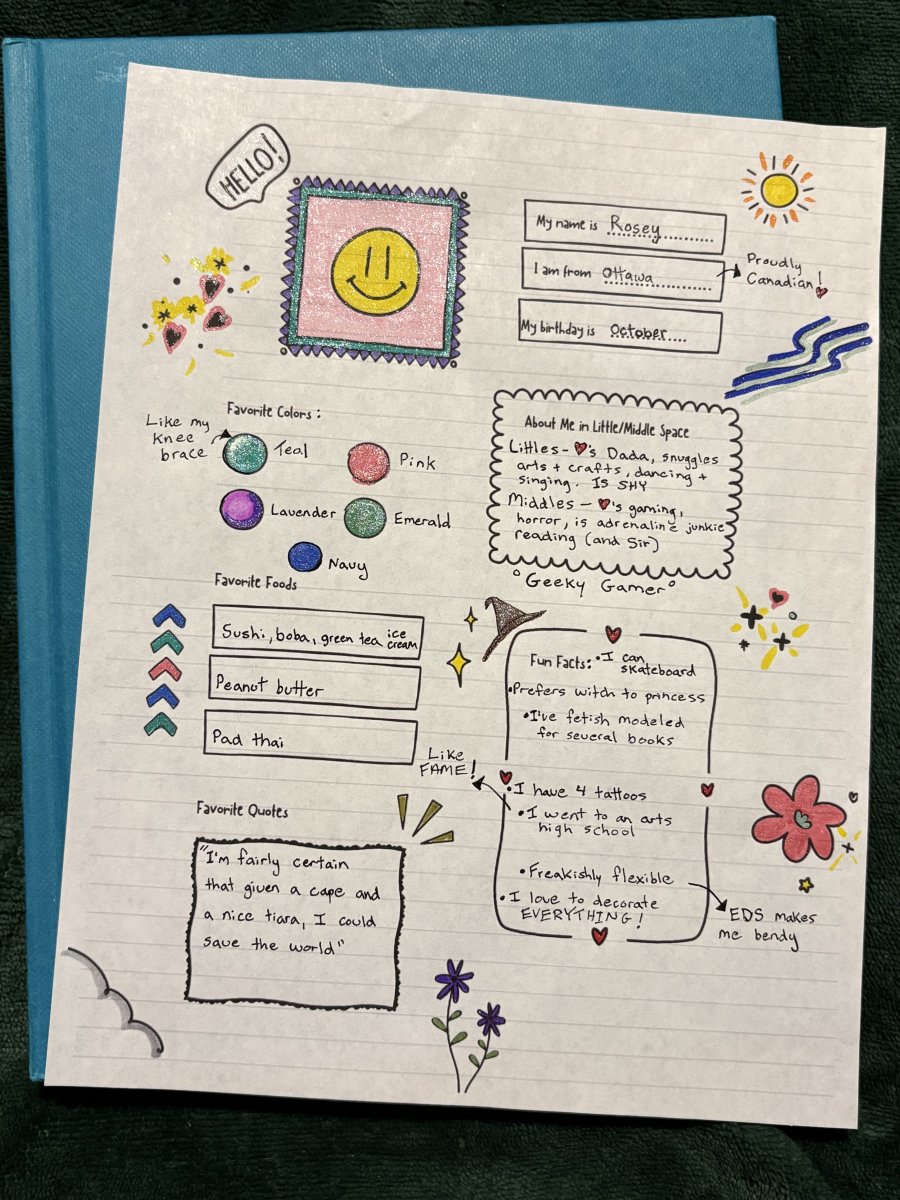 HELLO!
My name is Rosey
I am from Ottawa
Proudly
Canadian!
My birthday is October
Favorite Colors:
Like my
Knee
brace
Teal
Pink
Lavender
Emerald
Navy
About Me in Little/Middle Space
Littles- ♥'s Dada, snuggles
arts + crafts, dancing +
singing. IS SHY
Middles - ♥'s gaming,
horror, is adrenaline junkie
reading (and Sir)
°Geeky Gamer°
Favorite Foods
Sushi, boba, green tea ice cream
Peanut butter
Pad thai
Fun Facts: •I can
skateboard
•Prefers witch to princess
•I've fetish modeled
for several books
Like
FAME!
•I have 4 tattoos
•I went to an arts
high school
•Freakishly flexible
•I love to decorate
EVERYTHING!
EDS makes
me bendy
Favorite Quotes
"I'm fairly certain
that given a cape and
a nice tiara, I could
save the world"